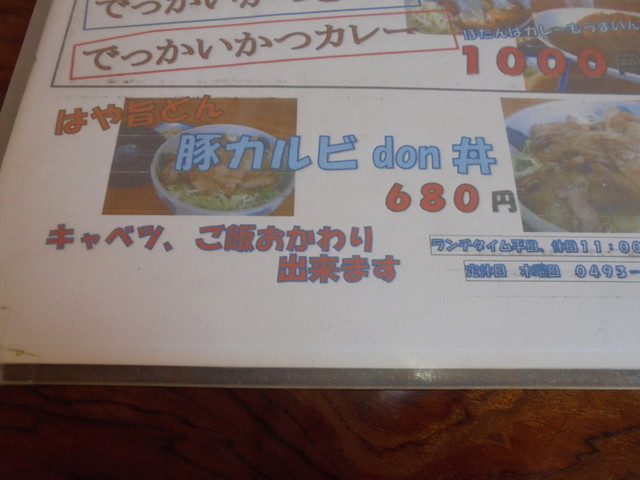 でっかいかつカレー
ぼたんはカレーもうまいん
1000円
はや旨どん
豚カルビdon丼
680円
キャベツ、ご飯おかわり
出来ます
ランチタイム平日、休日11:00
定休日 木曜日 0493-